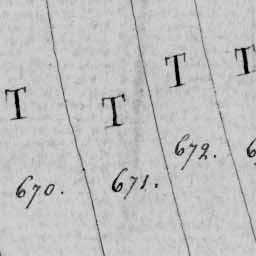 T T T T
670. 671. 672. 6